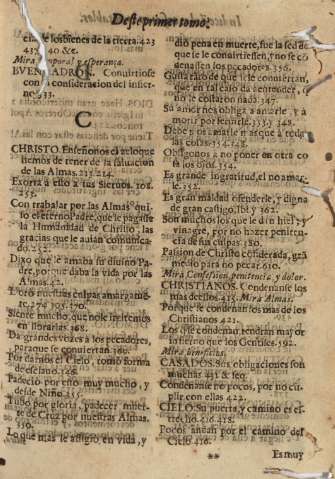 Deste primer tomo.
cia de los bienes de la tierra. 423
437. &c.
Mira temporal y esperança.
BVEN LADRON. Convirtiose
con la consideracion del infier-
no. 33.
C
CHRISTO. Enseñonos el zelo que
hemos de tener de la salvacion
de las Almas. 213. 214.
Exorta à ello a sus Siervos. 108.
255.
Con trabajar por las Almas qui-
so el eterno Padre, que le pagasse
la Humanidad de Christo, las
gracias que le avia comunica-
do. 252.
Dixo que le amaba su divino Pa-
dre, porque daba la vida por las
Almas. 42.
Lorò nuestras culpas amargamen-
te. 276 105. 170.
Siente mucho, que no le imitemos
en llorarlas. 368.
Da grandes vozes a los pecadores,
para que se conviertan. 360.
Por darnos el Cielo, como forma
de esclavo. 348.
Padeciò por esto muy mucho, y
desde Niño. 355.
Tubo por gloria, padecer muer-
te de Cruz por nuestras Almas.
350.
Lo que mas le afligiò en vida, y
dio pena en muerte, fue la sed de
que se le convirtiessen, y no se co
denassen los pecadores. 356.
Gusta tanto de que se le conviertan,
que en tal caso
no le costaron nada. 347.
Su amor nos obliga a amarle, y a
morir por servirle. 353. 348.
Debe ser amarle mas que a todas
las cosas. 354. 348.
Obliganos a no poner en otra co
sa los ojos. 354.
Es grande ingratitud, el no amar-
le. 352.
Es gran maldad ofenderle, y digna
de gran castigo. Ibi y 362.
Son muchos los que le dan hiel, y
vinagre, por no hazer peniten-
cia de sus culpas. 380.
Passion de Christo considerada, gran
medio para no pecar. 610.
Mira Confession, penitencia y dolor.
CHRISTIANOS. Condenanse los
mas de ellos. 415. Mira Almas.
Porque se condenan los mas de los
Christianos. 421.
Los que se condenan, tendran mayor
infierno que los Gentiles. 592.
Mira beneficios.
CASADOS. Sus obligaciones son
muchas. 415 & seq.
Condenanse no pocos, por no cu-
plir con ellas. 422.
CIELO. Su puerta, y camino es es-
trecho. 416. 418.
Pocos andan por el camino del
Cielo. 416.
** Es muy